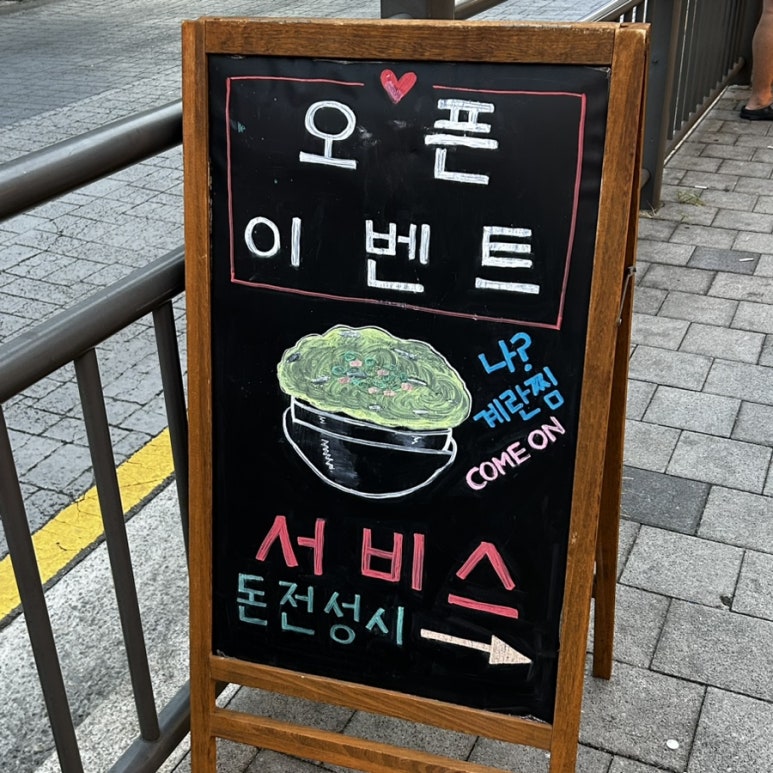 오픈
이벤트
나?
계란찜
COME ON
서비스
돈전성시